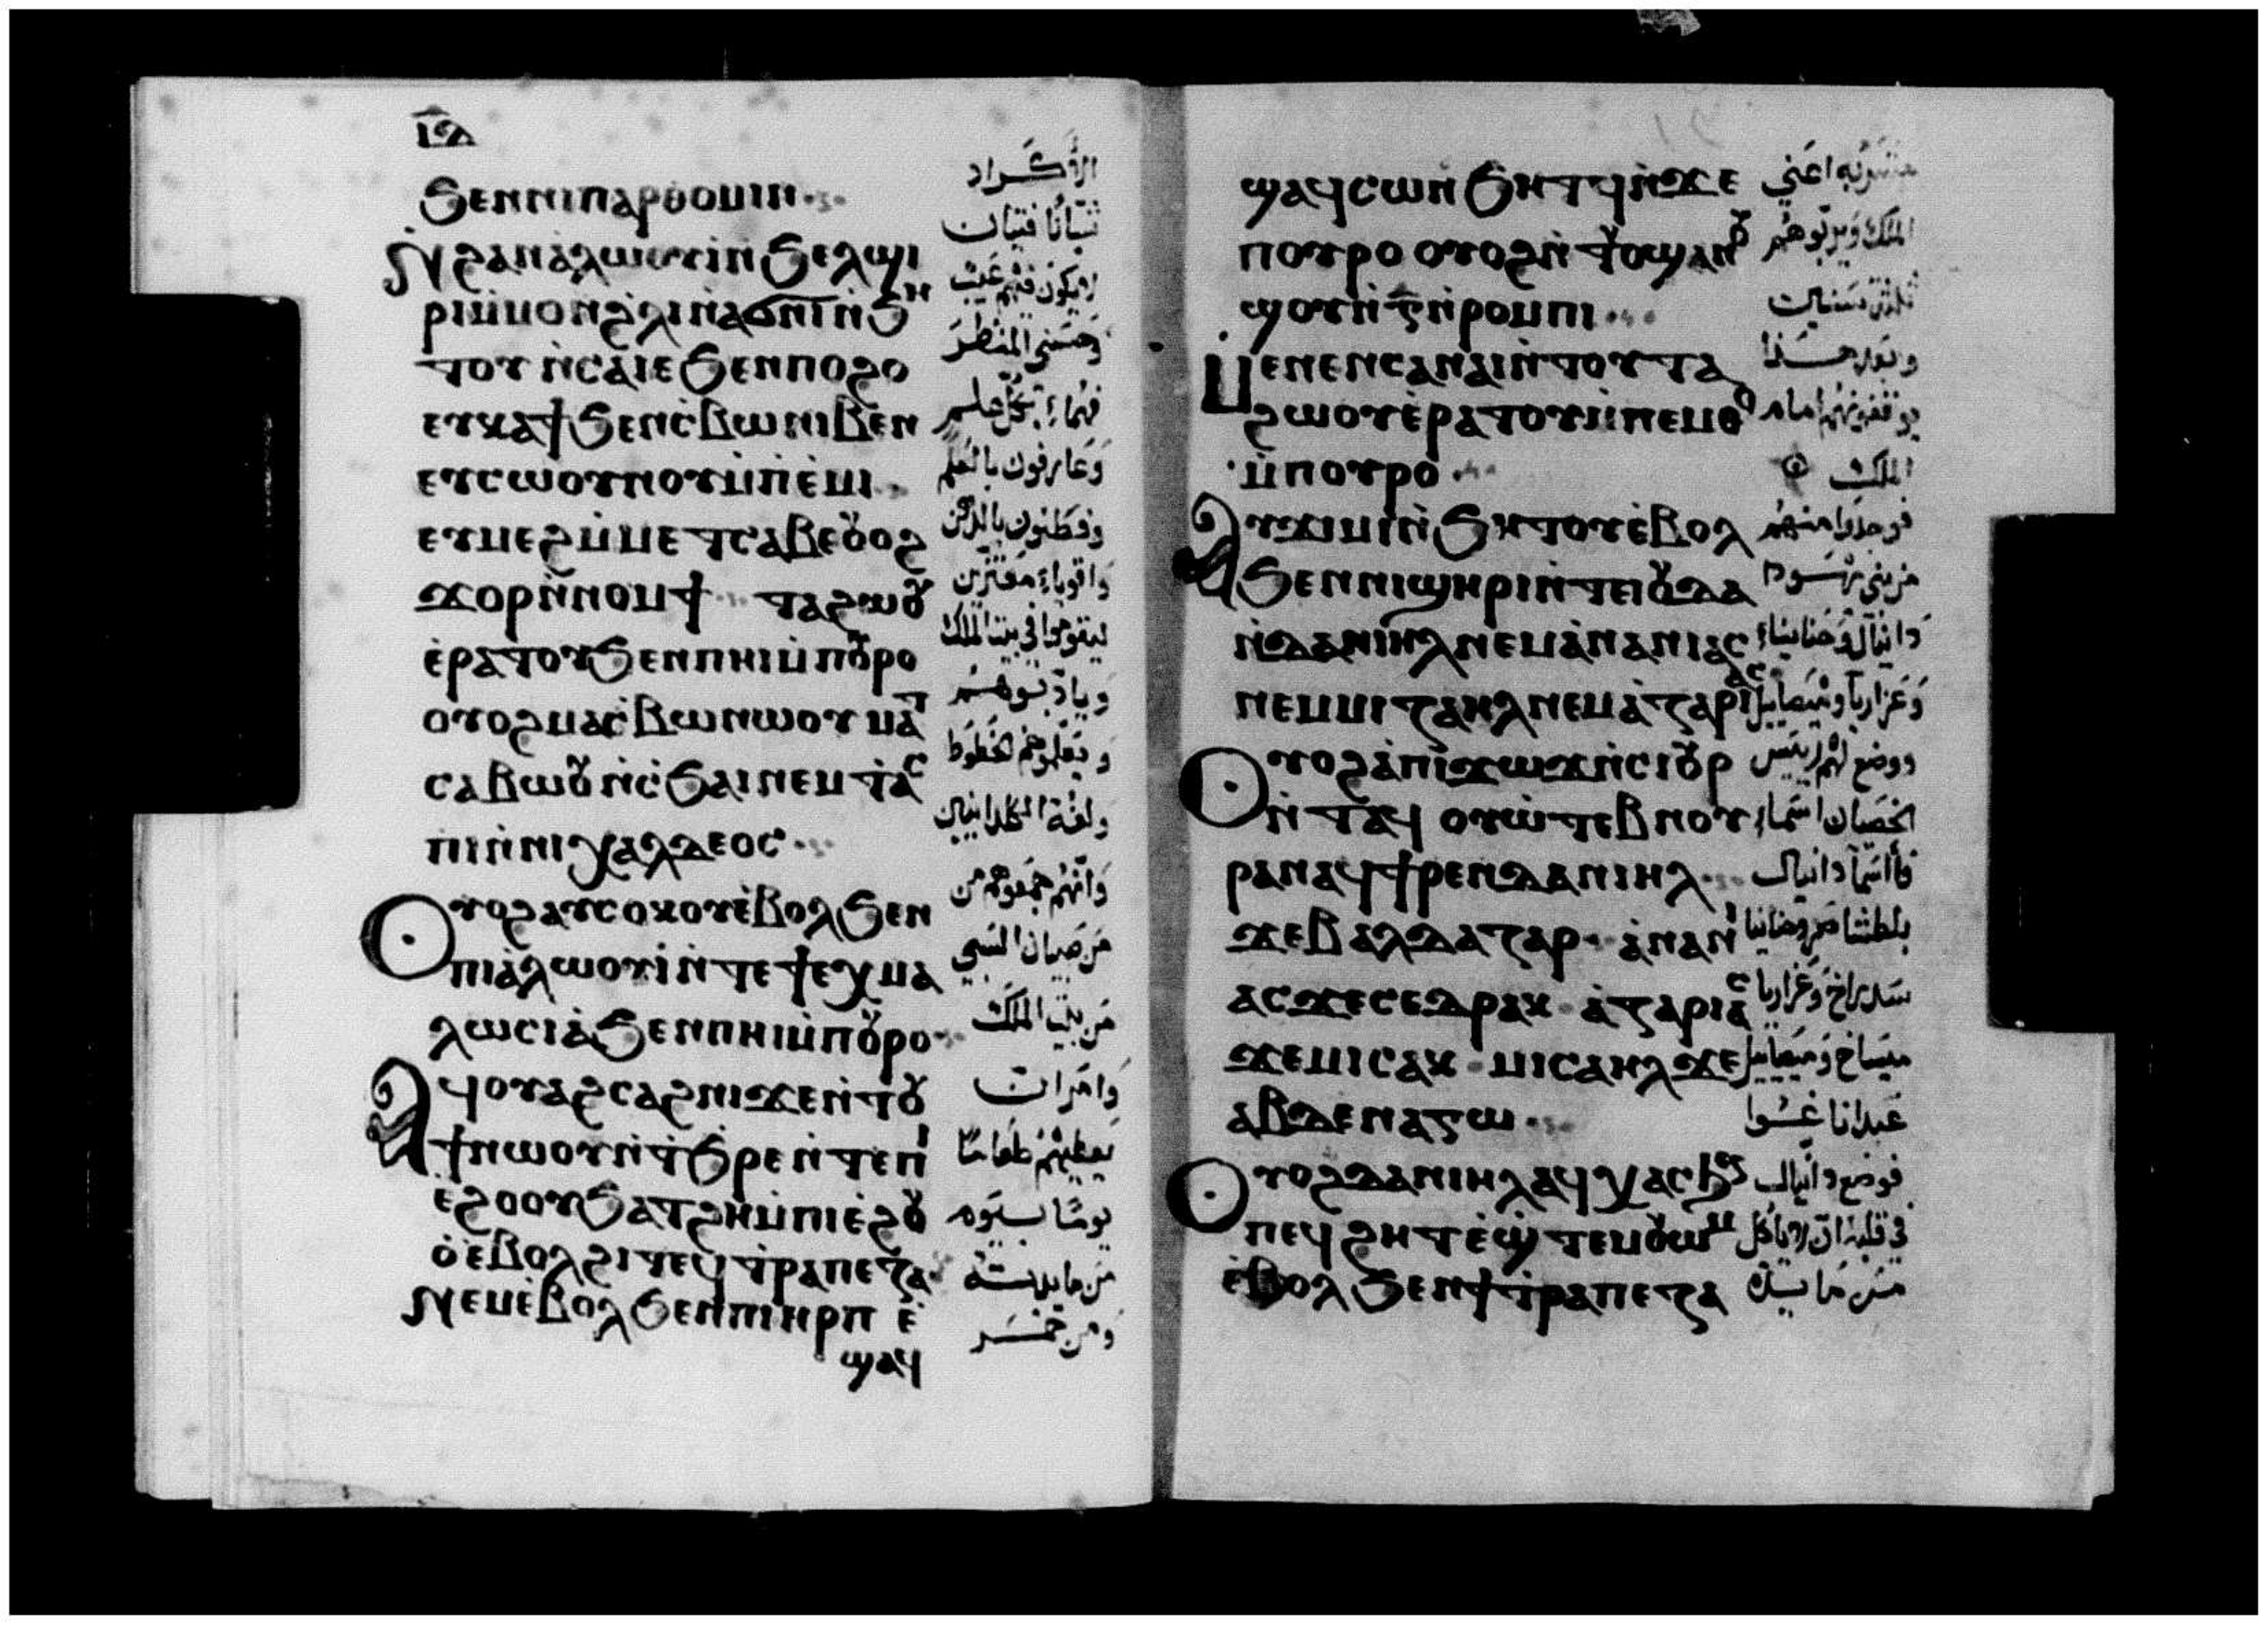 ⲓⲇ
ϧⲉⲛⲛⲓⲡⲁⲣⲑⲟⲙⲓⲛ
ⲛϩⲁⲛⲁ̀ⲗⲱⲟⲩⲓ̀ⲛ̀ϧⲉⲗϣⲓ
ⲣⲓⲙ̀ⲙⲟⲛϩ̀ⲗⲓⲛ̀ⲁϭⲛⲓⲛ̀ϧⲏ
ⲧⲟⲩ ⲛ̀ⲥⲁⲓⲉ ϧⲉⲛⲡⲟϩⲟ
ⲉⲩⲕⲁϯ ϧⲉⲛⲥ̀ⲃⲱⲛⲓⲃⲉⲛ
ⲉⲩⲥⲱⲟⲩⲛⲟⲩⲙ̀ⲡⲉ̀ⲙⲓ
ⲉⲩⲙⲉϩⲙ̀ⲙⲉⲧⲥⲁⲃⲉⲟⲩⲟϩ
ϫⲟⲣⲛ̀ⲛⲟⲙϯ ⲧⲁϩⲱⲟⲩ
ⲉ̀ⲣⲁⲧⲟⲩ ϧⲉⲛⲡⲏⲓⲙ̀ⲡⲟⲩⲣⲟ
ⲟⲩⲟϩⲙⲁⲥ̀ⲃⲱⲛⲱⲟⲩ ⲙⲁⲧ
ⲥⲁⲃⲱⲟⲩ ⲛ̀ⲥ̀ϧⲁⲓ ⲛⲉⲙ ⲧ̀ⲁⲥ
ⲡⲓⲛ̀ⲛⲓⲭⲁⲗⲇⲉⲟⲥ
ⲟⲩⲟϩⲁⲩⲥⲟⲕⲟⲩⲉ̀ⲃⲟⲗ ϧⲉⲛ
ⲡⲓⲁ̀ⲗⲱⲟⲩⲓ̀ⲛ̀ⲧⲉ ϯⲉⲭⲙⲁ
ⲗⲱⲥⲓⲁ̀ ϧⲉⲛⲡⲏⲓⲙ̀ⲡⲟⲩⲣⲟ
ⲁϥⲟⲩⲁϩⲥⲁϩⲛⲓ ϫⲉⲛ̀ⲧⲟⲩ
ϯⲛⲱⲟⲩⲛ̀ϯϧⲣⲉⲛ̀ⲧⲉⲡⲓ
ⲉ̀ϩⲟⲟⲩ ϧⲁⲧϩⲏⲙ̀ⲡⲓⲉ̀ϩⲟⲩ
ⲟ̀ ⲉⲃⲟⲗϩⲓⲧⲉϥⲧ̀ⲣⲁⲡⲉⲍⲁ
ⲛⲉⲙⲉ̀ⲃⲟⲗ ϧⲉⲛⲡⲓⲏⲣⲡ ⲉ̀
ϣⲁϥ
الأكراد
شبّانًا فتيان
لا يكون فيهم عيب
وحسني المنظر
فهماء بكل علم
وعارفون بالعلم
وفطنون بالذهن
واقوياء مقتدرين
ليقوموا في بيت الملك
ويادّبوهم
ويعلموهم الخطوط
ولغة الكلدانيين
وانهم جمعوهم من
من صبيان السبي
من بيت الملك
وامر ان
يعطيهم طعامًا
يومًا بيوم
من مايدته
ومن خمر
ϣⲁϥⲥⲱⲛ̀ϧⲏⲧϥⲛ̀ϫⲉ
ⲡⲟⲩⲣⲟ ⲟⲩⲟϩⲛ̀ⲧⲟⲩϣⲁⲛⲟⲩ
ϣⲟⲩⲛ̀ⲅⲛ̀ⲣⲟⲙⲡⲓ
ⲙⲉⲛⲉⲛⲥⲁⲛⲁⲓⲛ̀ⲧⲟⲩⲧⲁ
ϩⲱⲟⲩⲉ̀ⲣⲁⲧⲟⲩⲙ̀ⲡⲉⲙⲑⲟ
ⲙ̀ⲡⲟⲩⲣⲟ
ⲁⲩϫⲓⲙⲓⲛ̀ϧⲏⲧⲟⲩⲉ̀ⲃⲟⲗ
ϧⲉⲛⲛⲓϣⲏⲣⲓⲛ̀ⲧⲉⲓⲟⲩⲇⲁ
ⲛ̀ⲇⲁⲛⲓⲏⲗ ⲛⲉⲙⲁ̀ⲛⲁⲛⲓⲁⲥ
ⲛⲉⲙⲙⲓⲍⲁⲏⲗ ⲛⲉⲙⲁ̀ⲍⲁⲣⲓⲁⲥ
ⲟⲩⲟϩⲁ̀ⲡⲓϫⲱϫⲛ̀ⲥⲓⲟⲩⲣ
ⲛ̀ⲧⲁϥ ⲟⲩⲱ̀ⲧⲉⲃⲛⲟⲩ
ⲣⲁⲛⲁϥϯⲣⲉⲛⲇⲁⲛⲓⲏⲗ
ϫⲉⲃⲁⲗⲇⲁⲍⲁⲣ ⲁ̀ⲛⲁⲛⲓ
ⲁⲥϫⲉⲥⲉⲇⲣⲁⲕ ⲁ̀ⲍⲁⲣⲓⲁⲥ
ϫⲉⲙⲓⲥⲁⲕ ⲙⲓⲥⲁⲏⲗϫⲉ
ⲁⲃⲇⲉⲛⲁⲅⲱ
ⲟⲩⲟϩⲇⲁⲛⲓⲏⲗⲁϥⲭⲁⲥ
ⲡⲉϥϩⲏⲧⲉ̀ϣ̀ⲧⲉⲙⲟⲩⲱⲙ
ⲉ̀ⲃⲟⲗ ϧⲉⲛϯⲧ̀ⲣⲁⲡⲉⲍⲁ
اعني
الملك ويربّوهم
ثلاث سنين
وبعد هذا
يوقفونهم امام
الملك
فوجدوا منهم
من بني يهودا
دانيال وحنانياء
وعزاريا وميصاييل
ووضع لهم رييس
الخصيان اسماء
فأسمّا دانيال
بلطشاصر وحنانيا
سدراخ وعزاريا
ميساخ وميصاييل
عبداناغوا
فوضع دانيال
في قلبه ان لا ياكل
من مايدة